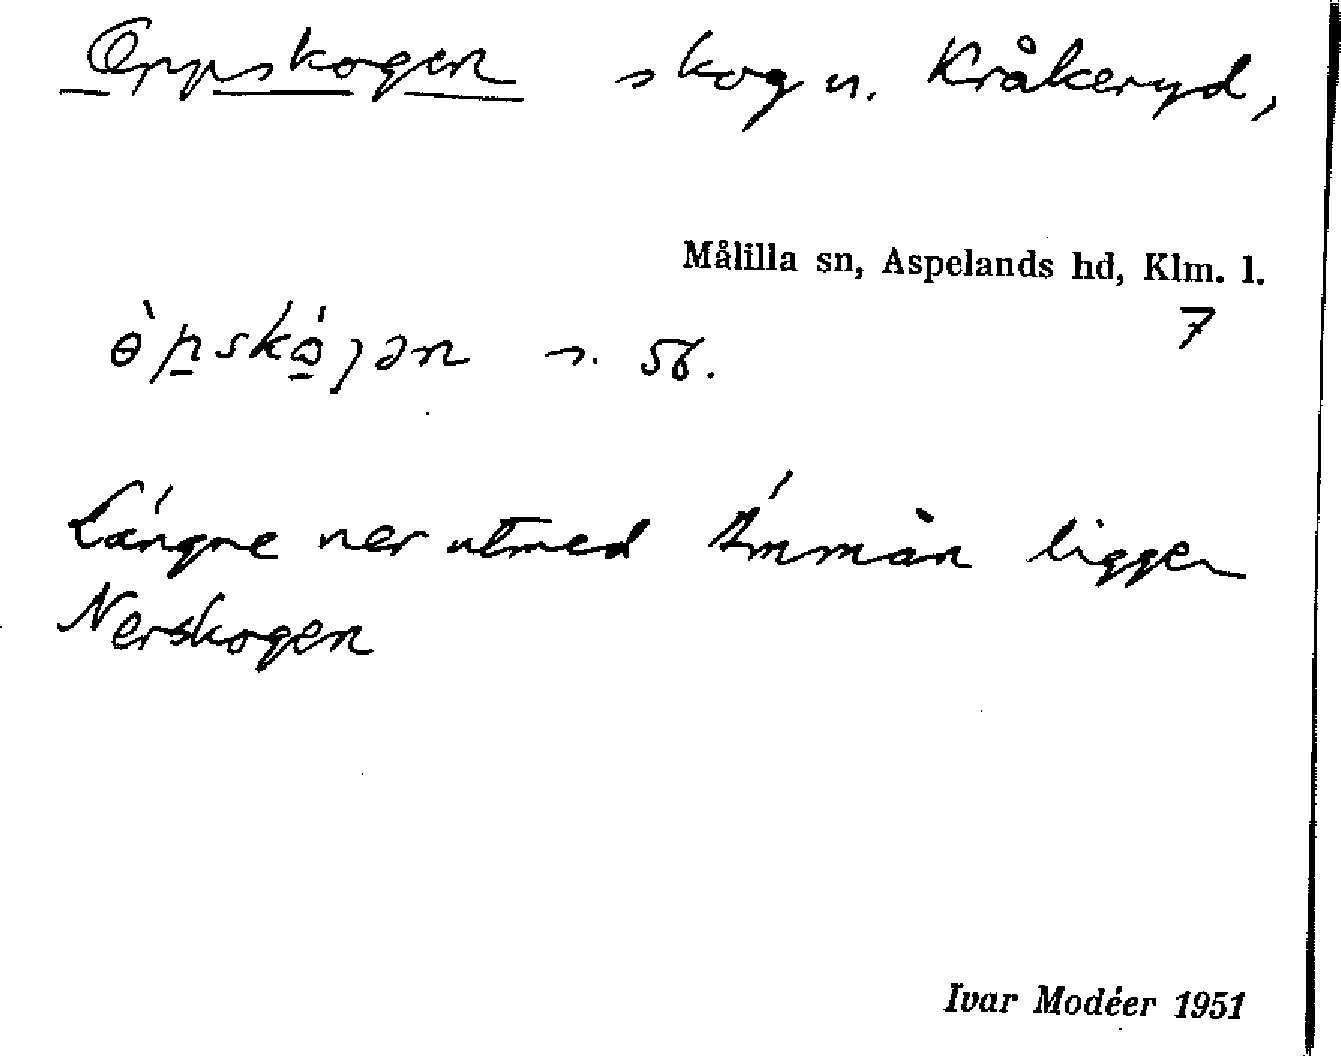 Oppskogen skog n. Kråkeryd,
Målilla sn, Aspelands hd, Klm. l.
7
s. 56.
Längre ner utmed Ämmån ligger
Nerskogen
Ivar Modéer 1951